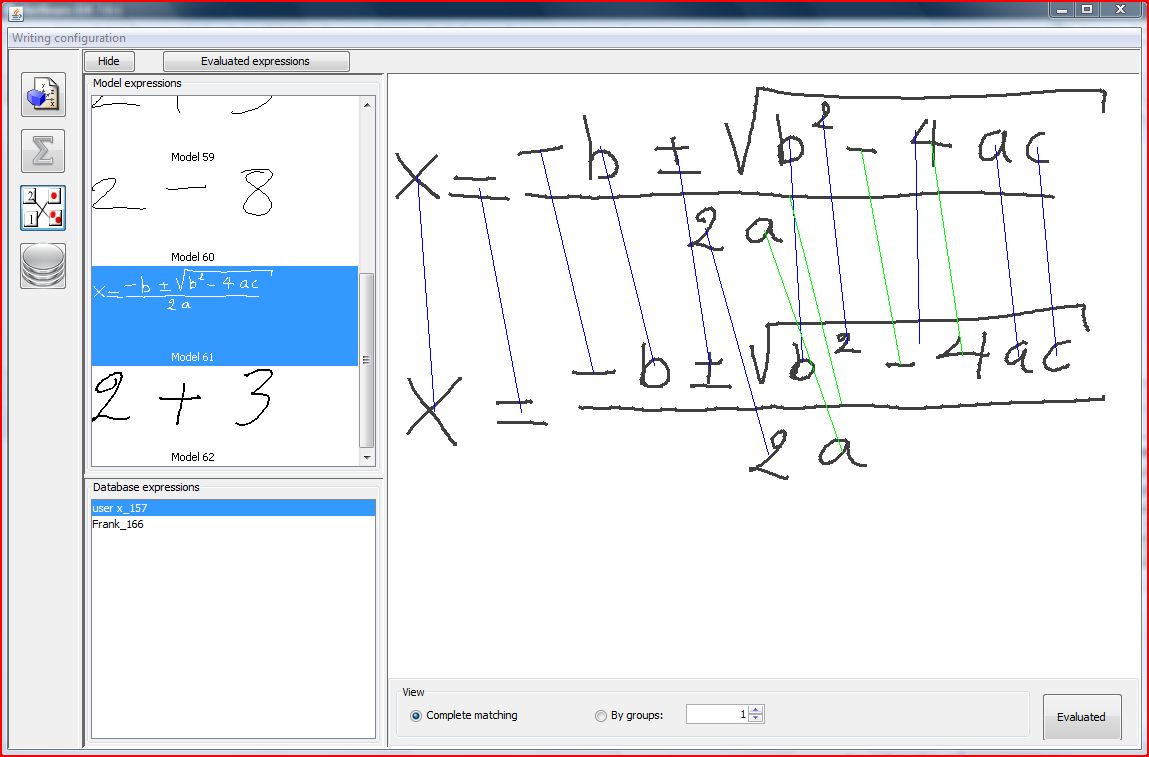 Writing configuration
Hide
Evaluated expressions
Model expressions
2 + 3
Model 59
2 - 8
Model 60
x = -b ± √b² - 4ac
2a
Model 61
2 + 3
Model 62
Database expressions
user x_157
Frank_166
x = -b ± √b² - 4ac
2a
x = -b ± √b² - 4ac
2a
View
Complete matching
By groups:
1
Evaluated